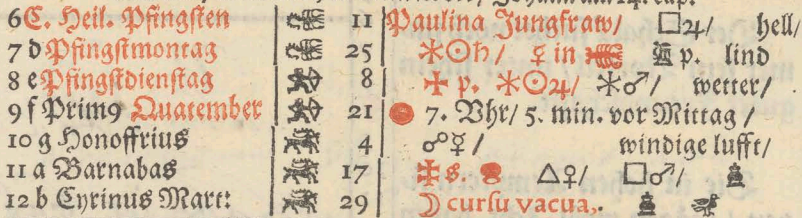 6 C. Heil. Pfingsten 11 Paulina Jungfraw/ □♃/ hell/
7 d Pfingstmontag 25 ⚹☉♄/ ♀ in p. lind
8 e Pfingstdienstag 8 p. ⚹☉♃/ ⚹♂/ wetter/
9 f Prim9 Quatember 21 7. Vhr/ 5. min. vor Mittag/
10 g Honoffrius 4 ☍☿/ windige lufft/
11 a Barnabas 17 s. △♀/ □♂/
12 b Cyrinus Mart: 29 ☽ cursu vacua,.